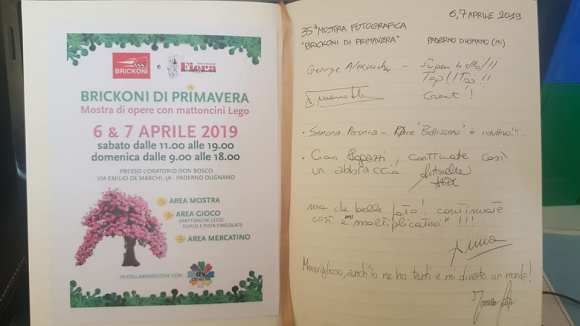 BRICKONI
BRICKONI DI PRIMAVERA
Mostra di opere con mattoncini Lego
6 & 7 APRILE 2019
sabato dalle 11.00 alle 19.00
domenica dalle 9.00 alle 18.00
PRESSO L'ORATORIO DON BOSCO
VIA EMILIO DE MARCHI, PADERNO DUGNANO
AREA MOSTRA
AREA GIOCO
AREA MERCATINO
IN COLLABORAZIONE CON
6,7 APRILE 2019
35ª MOSTRA FOTOGRAFICA
"BRICKONI DI PRIMAVERA" PADERNO DUGNANO (MI)
George - Super bello!!
Top!!
Great!
Simona
Cari Ragazzi, continuate così
un abbraccio
ma che belle foto! continuate
così e moltiplicatevi!!!
Anna
Meraviglioso, anch'io ne ho tanti e mi diverto un mondo!